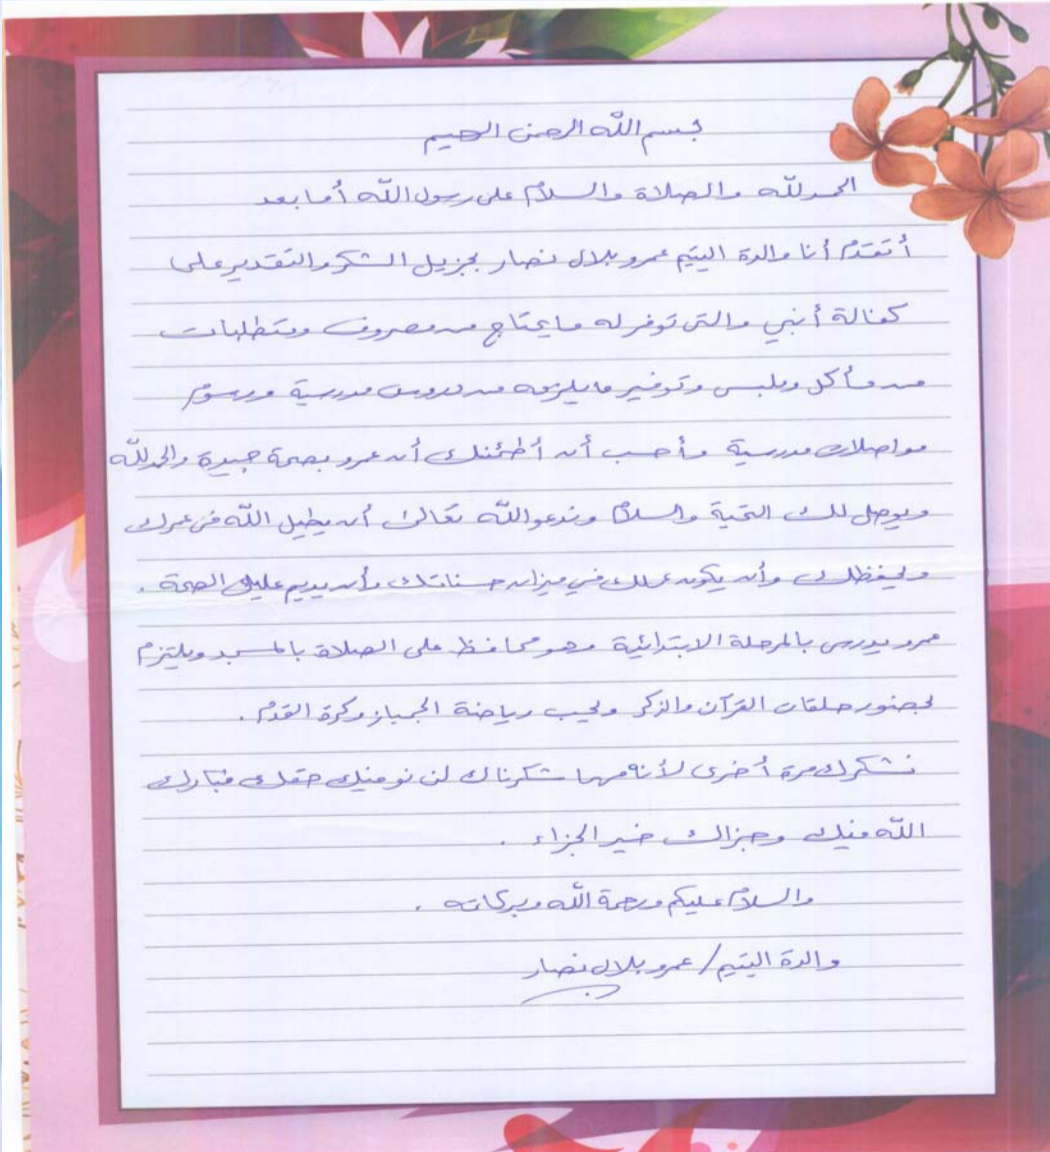 بسم الله الرحمن الرحيم
الحمد لله والصلاة والسلام على رسول الله أما بعد
أتقدم أنا والدة اليتيم عمرو بلال نصار بجزيل الشكر والتقدير على
كفالة أبني والتي توفر له ما يحتاج من مصروف ومتطلبات
من مأكل وملبس وتوفير ما يلزمه من دروس مدرسية ورسوم
مواصلات مدرسية وأحب أن أطمئنك أن عمرو بصحة جيدة والحمد لله
ويوصل لك التحية والسلام وندعو الله تعالى أن يطيل الله في عمرك
ويحفظك وأن يكون عملك في ميزان حسناتك وأن يديم عليك الصحة .
عمرو يدرس بالمرحلة الابتدائية وهو محافظ على الصلاة بالمسجد وملتزم
بحضور حلقات القرآن والذكر ويحب رياضة الجمباز وكرة القدم .
نشكرك مرة أخرى لأنه مهما شكرناك لن نوفيك حقك فبارك
الله فيك وجزاك خير الجزاء .
والسلام عليكم ورحمة الله وبركاته .
والدة اليتيم / عمرو بلال نصار